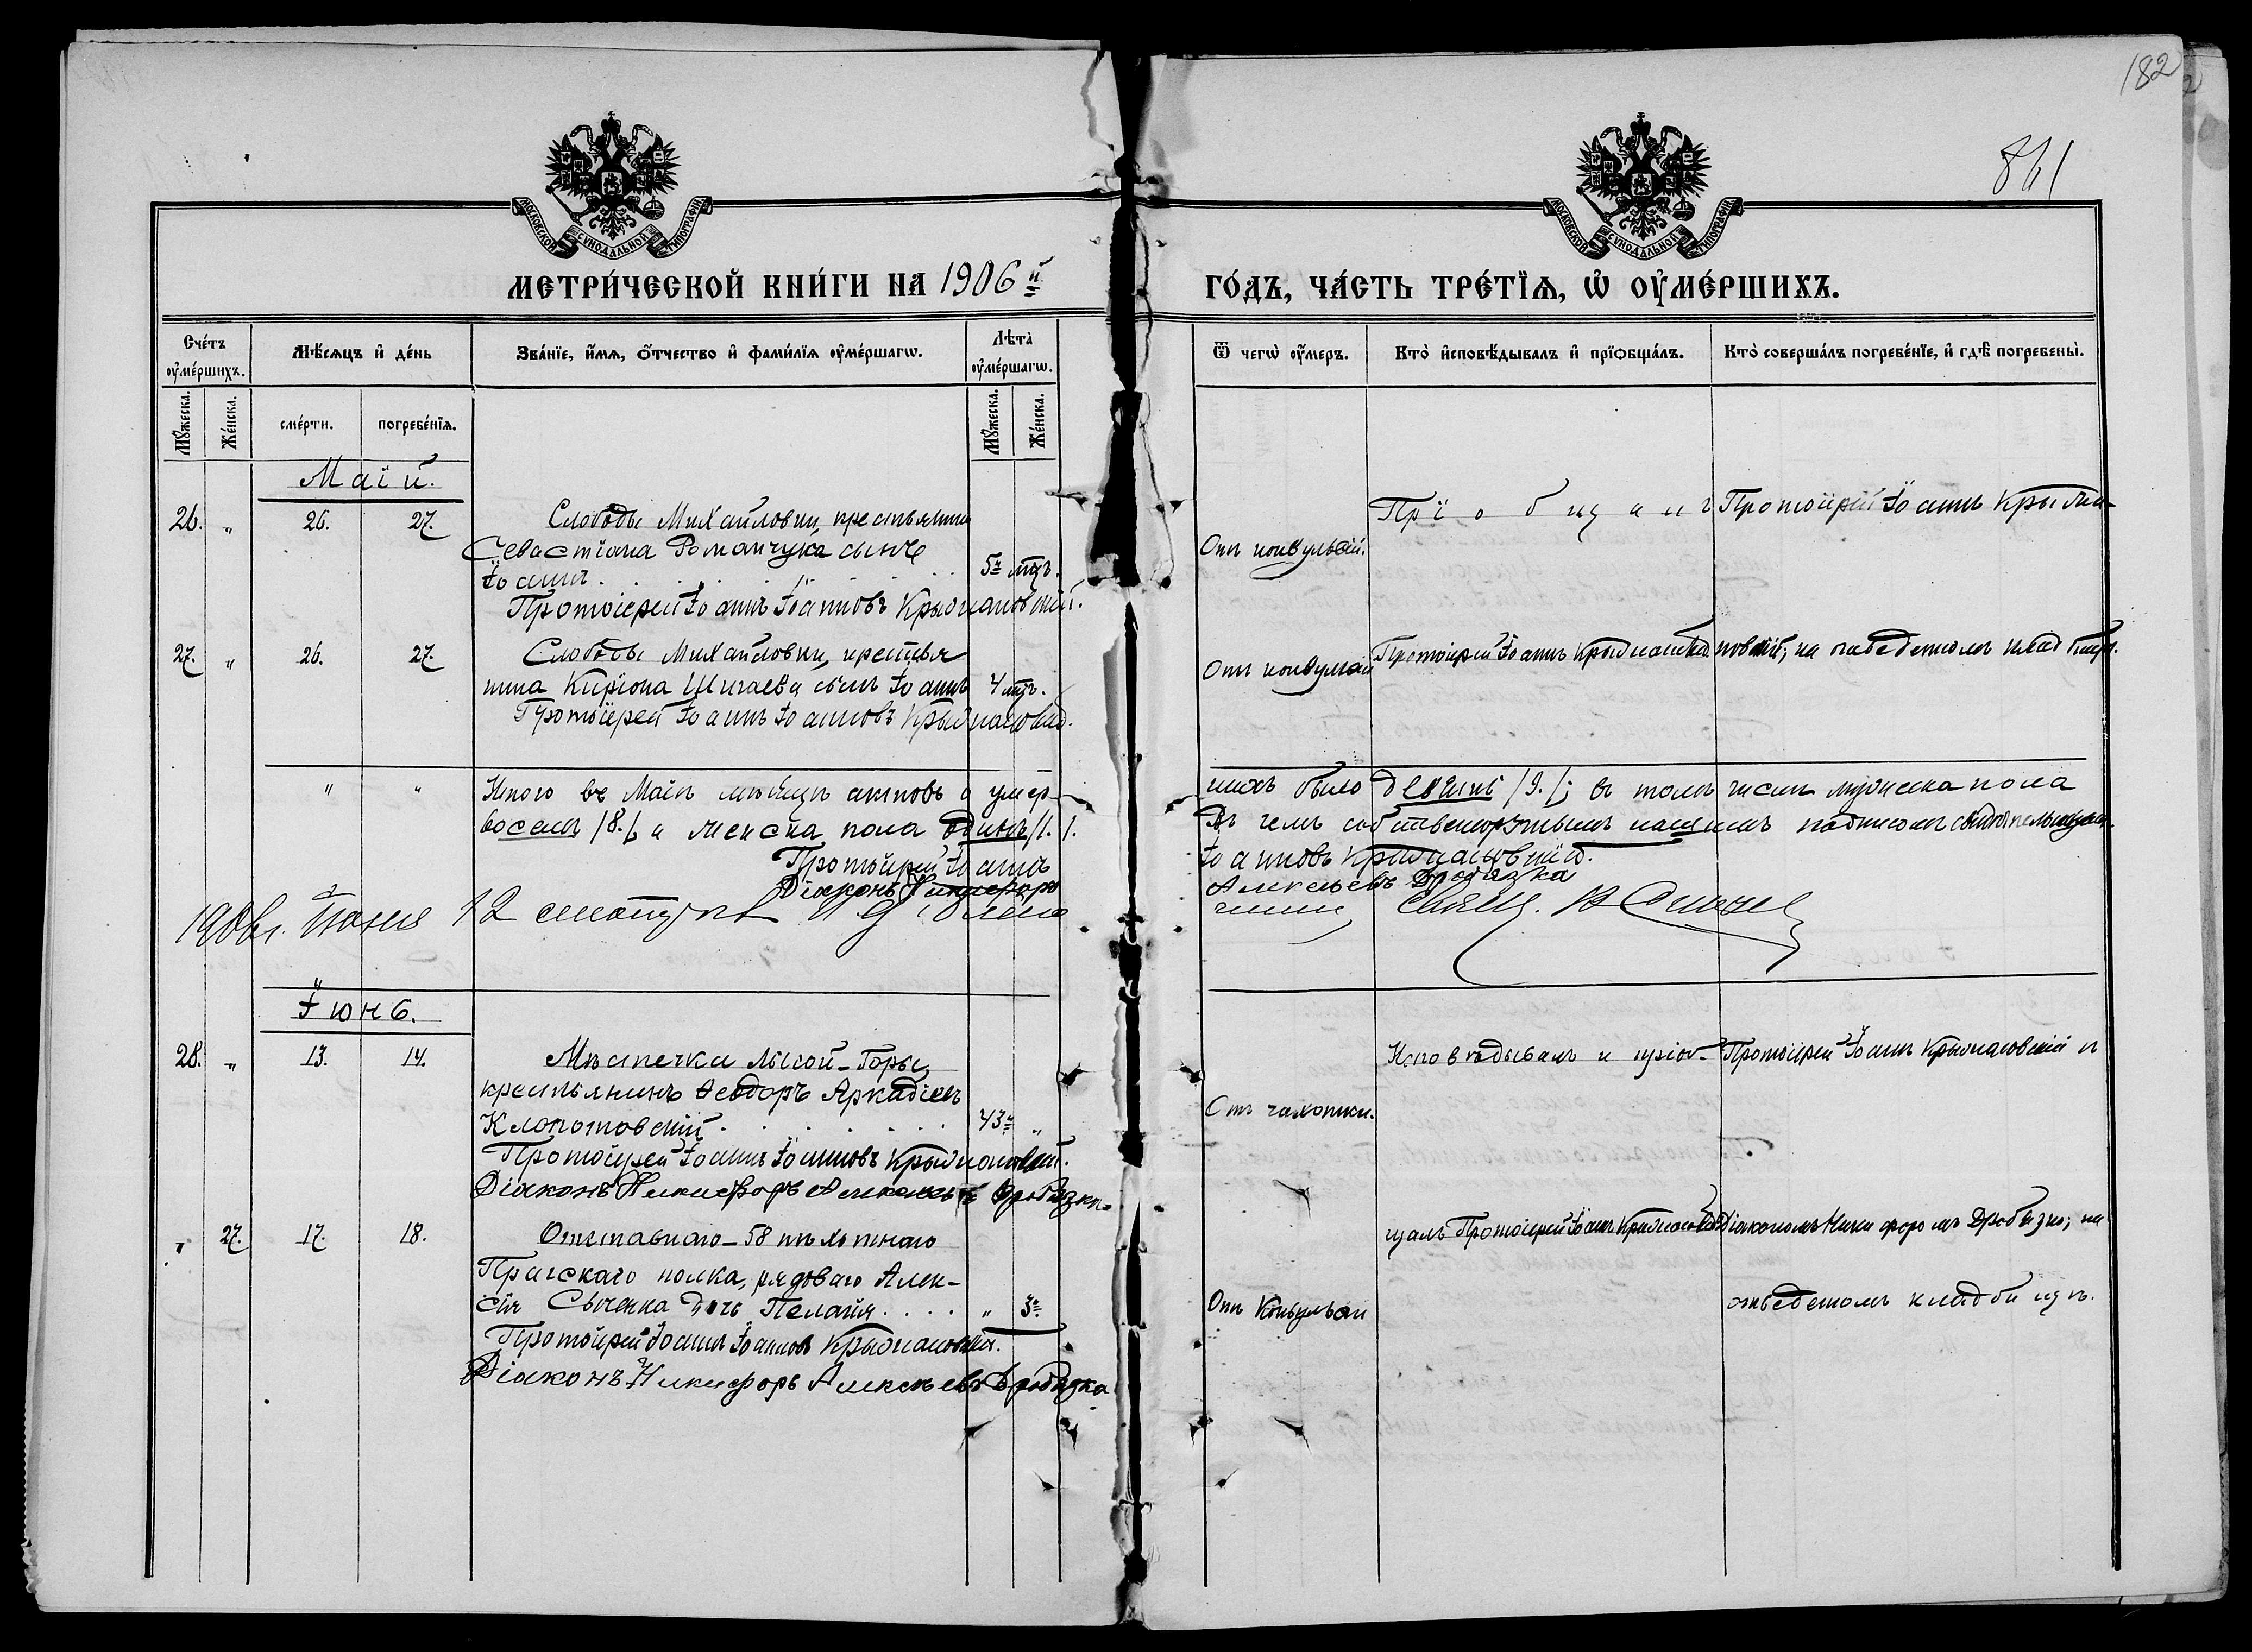 182
861
МОСКОВСКОЙ СУНОДАЛЬНОЙ ТИПОГРАФІИ
МОСКОВСКОЙ СУНОДАЛЬНОЙ ТИПОГРАФІИ
МЕТРИ́ЧЕСКОЙ КНИ́ГИ НА 1906й
ГО́ДЪ, ЧА́СТЬ ТРЕ́ТЇѦ, Ѡ҆ ОУ҆МЕ́РШИХЪ.
Сче́тъ оу҆ме́ршихъ.
Мѣ́сѧцъ и҆ де́нь
Зва́нїе, и҆́мѧ, ѻ҆́тчество и҆ фами́лїѧ оу҆ме́ршагѡ.
Лѣта̀ оу҆ме́ршагѡ.
Ѿ чегѡ̀ оу҆́меръ.
Кто̀ и҆сповѣ́дывалъ и҆ прїѡбща́лъ.
Кто̀ соверша́лъ погребе́нїе, и҆ гдѣ̀ погребены̀.
Мꙋ́жеска.
Же́нска.
сме́рти.
погребе́нїѧ.
Мꙋ́жеска.
Же́нска.
Маій.
26. " 26. 27. Слободы Михайловки, крестьянина
Севастіана Романчука сынъ
Іоаннъ. 5ть мѣц.
Протоіерей Іоаннъ Іоанновъ Крыжановскій.
Отъ конвульсій.
Пріобщалъ
Протоіерей Іоаннъ Крыжа-
27. " 26. 27. Слободы Михайловки, крестья
нина Киріона Шигаева сынъ Іоаннъ 4 мѣц.
Протоіерей Іоаннъ Іоанновъ Крыжановскій.
Отъ конвульсій
Протоіерей Іоаннъ Крыжановскій.
новскій; на отведенномъ кладбищѣ.
" " Итого въ Маѣ мѣсяцѣ актовъ о умер-
шихъ было девять /9./; въ томъ числѣ мужеска пола
восемь /8./, а женска пола одинъ /1./.
Въ чемъ собственноручнымъ нашимъ подписомъ свидѣтельствуемъ.
Протоіерей Іоаннъ
Іоанновъ Крыжановскій.
Діаконъ Никифоръ
Алексѣевъ Дробязка
1906 г. Іюня 12
Свящ.
Іюнь.
28. " 13. 14. Мѣстечка Лысой-Горы,
крестьянинъ Ѳеодоръ Аркадіевъ
Клопотовскій. 43. "
Протоіерей Іоаннъ Іоанновъ Крыжановскій.
Діаконъ Никифоръ Алексѣевъ Дробязка.
Отъ чахотки.
Исповѣдывалъ и пріоб-
Протоіерей Іоаннъ Крыжановскій съ
" 27. 17. 18. Отставного 58 пѣхотнаго
Прагскаго полка, рядоваго Алек-
сія Сыченка дочь Пелагія. " 3.
Протоіерей Іоаннъ Іоанновъ Крыжановскій.
Діаконъ Никифоръ Алексѣевъ Дробязка
Отъ конвульсіи
щалъ Протоіерей Іоаннъ Крыжановскій
Діакономъ Никифоромъ Дробязко; на
отведенномъ кладбищѣ.